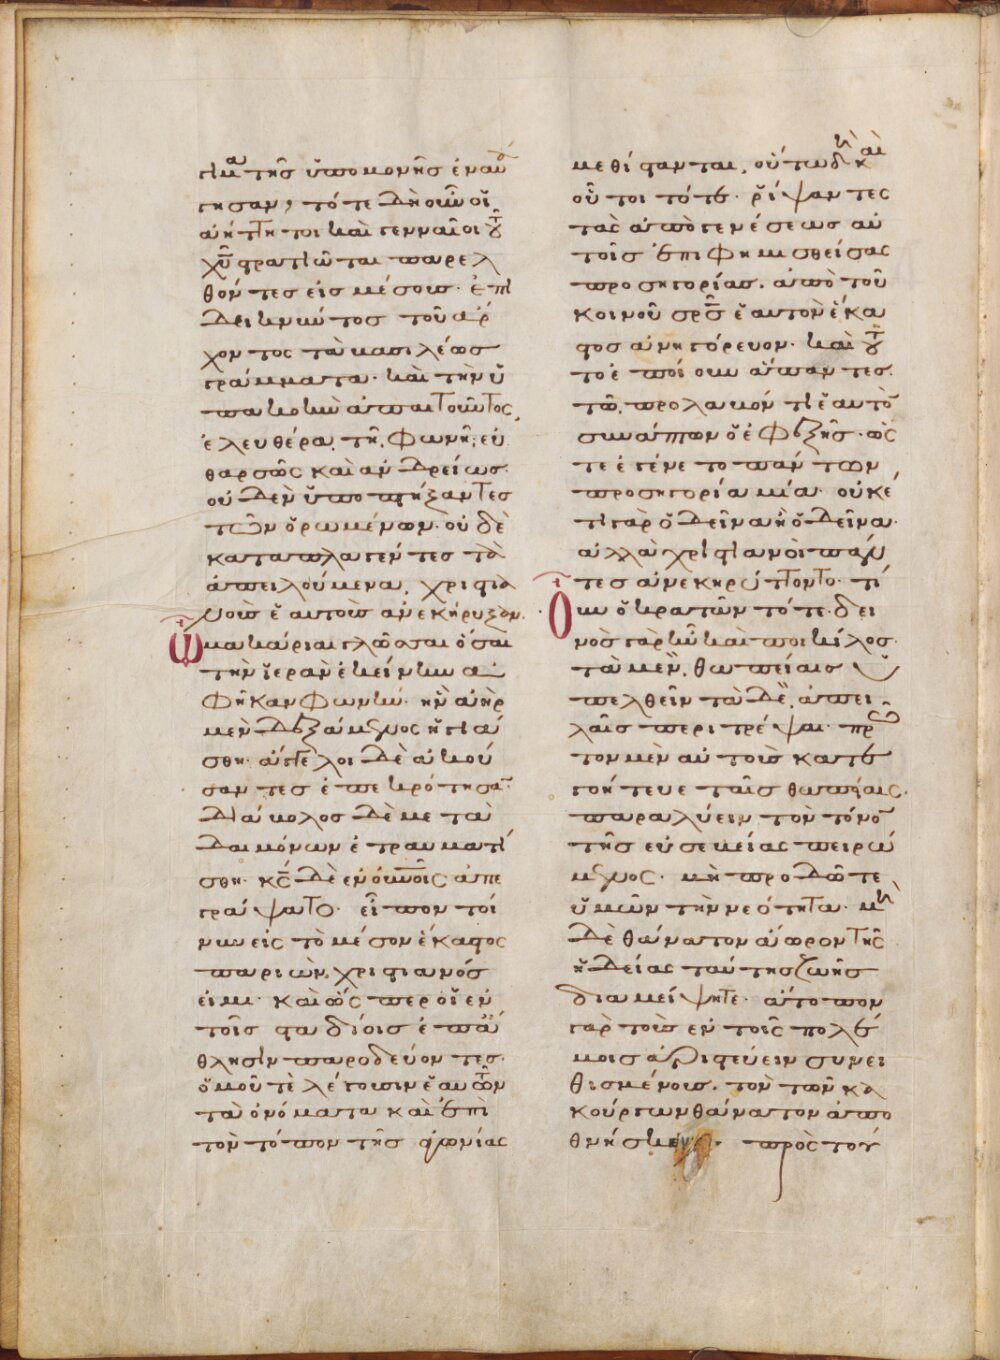 τιμα τῆς ὑπομονῆς ἐναυά
γησαν, τότε δὴ οὖν οἱ
ἀήττητοι καὶ γενναῖοι τοῦ
χῦ στρατιῶται παρελ
θόντες εἰς μέσους· ἐπι
δεικνύντος τοῦ ἄρ
χοντος τὰ βασιλέως
γράμματα· καὶ τὴν ὑ
πακοὴν ἀπαιτοῦντος,
ἐλευθέρα τῆ φωνῆ· εὐ
θαρσῶς καὶ ἀνδρείως·
οὐδὲν ὑποπτήξαντες
τῶν ὁρωμένων· οὐδὲ
καταπλαγέντες τὰ
ἀπειλούμενα, χριστια
νοὺς ἑαυτοὺς ἀνεκήρυξαν.
Ὢ μακάριαι γλῶσσαι ὅσαι
τὴν ἱερὰν ἐκείνην ἀ
φῆκαν φωνήν· ἣν ἀὴρ
μὲν δεξάμενος ἡγιά
σθη· ἄγγελοι δὲ ἀκού
σαντες ἐπεκρότησαν·
διάβολος δὲ μετὰ
δαιμόνων ἐτραυματί
σθη· κς δὲ ἐν οὐνοῖς ἀπε
γράψατο· εἶπον τοί
νυν εἰς τὸ μέσον ἕκαστος
παριὼν, χριστιανός
εἰμι· καὶ ὥσπερ οἱ ἐν
τοῖς σταδίοις ἐπ' ἄ
θλησιν παροδεύοντες·
ὁμοῦ τὲ λέγουσιν ἑαυτῶν
τὰ ὀνόματα καὶ ἐπὶ
τὸν τόπον τῆς ἀγωνίας
μεθίστανται, οὕτω δὴ καὶ
οὗτοι τότε· ῥίψαντες
τὰς ἀπὸ γενέσεως αὐ
τοῖς ἐπιφημισθείσας
προσηγορίας· ἀπὸ τοῦ
κοινοῦ σρς ἑαυτὸν ἕκα
στος ἀνηγόρευον· καὶ τοῦ
το ἐποίουν ἅπαντες·
τῶ προλαβόντι ἑαυτὸν
συνάπτων ὁ ἐφεξῆς· ὥς
τε ἐγένετο πάντων
προσηγορία μία· οὐκέ
τι γὰρ ὁ δεῖνα ἢ ὁ δεῖνα·
ἀλλὰ χριστιανοὶ πάν
τες ἀνεκηρύττοντο· τί
Οὖν ὁ κρατῶν τότε· δει
νὸς γὰρ ἦν καὶ ποικίλος·
τὰ μὲν, θωπείαις ὑ
πελθεῖν τὰ δὲ, ἀπει
λαῖς περιτρέψαι· πρῶ
τον μὲν αὐτοὺς κατε
γοήτευε ταῖς θωπείαις·
παραλύειν τὸν τόνον
τῆς εὐσεβείας πειρώ
μενος· μὴ προδῶτε
ὑμῶν τὴν νεότητα· μὴ
δὲ θάνατον ἄωρον τῆς
ἡδείας ταύτης ζωῆς
διαμείψητε· ἄτοπον
γὰρ τοὺς ἐν τοῖς πολέ
μοις ἀριστεύειν συνει
θισμένους· τὸν τῶν κα
κούργων θάνατον ἀπο
θνήσκειν· πρὸς τού